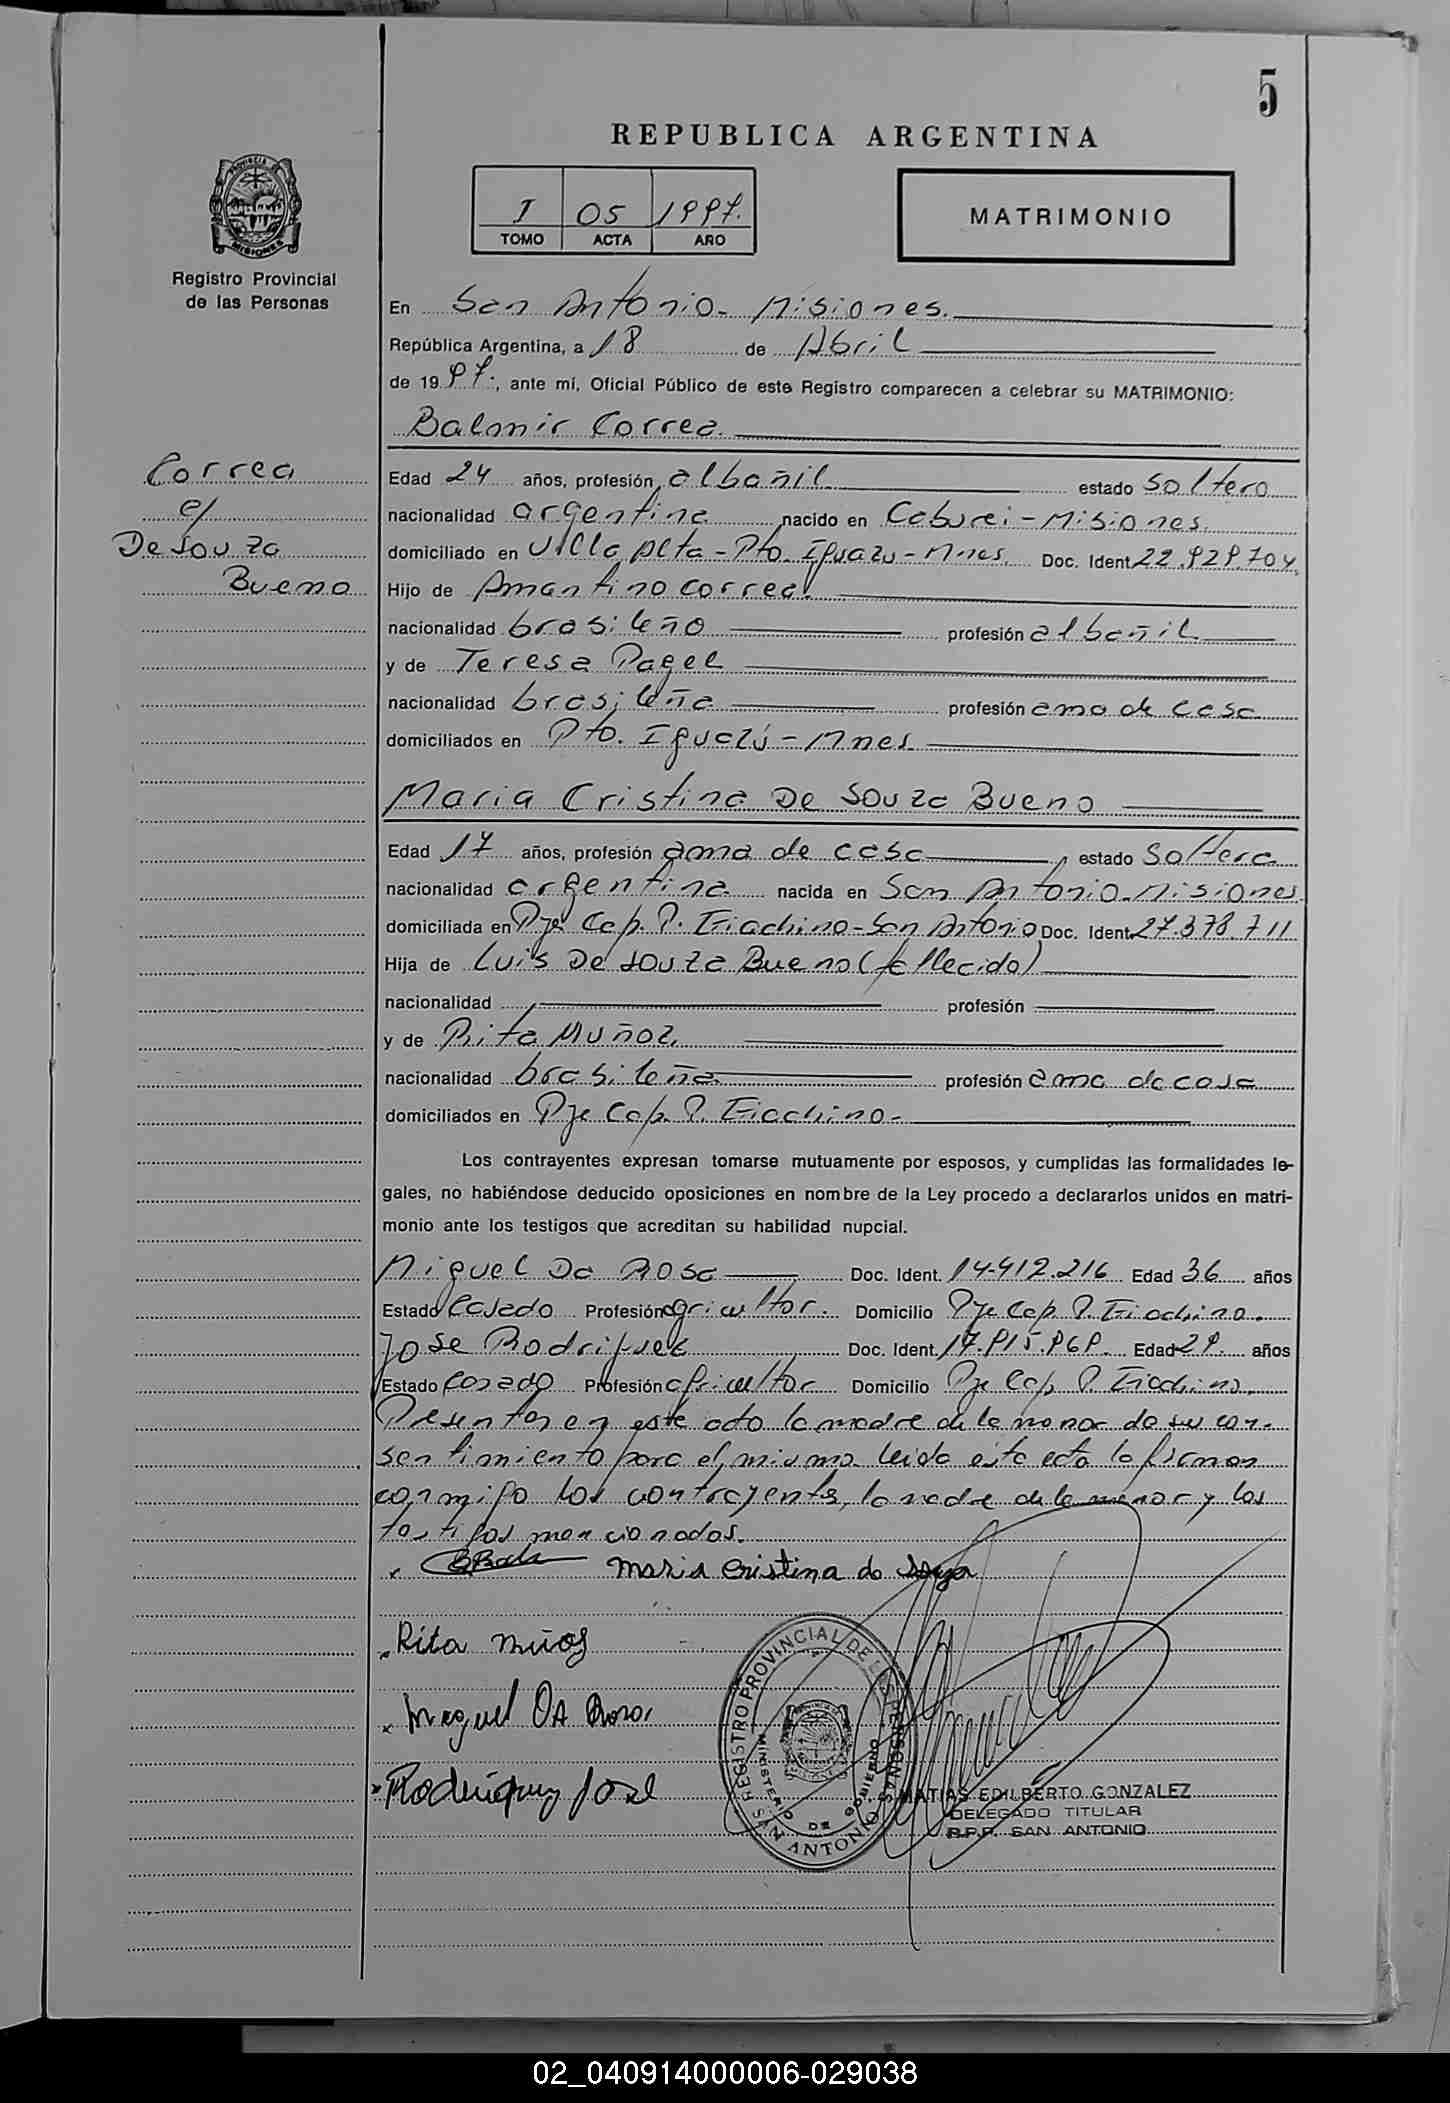 5
REPUBLICA ARGENTINA
I 05 1997.
TOMO ACTA AÑO
MATRIMONIO
PROVINCIA DE MISIONES
Registro Provincial
de las Personas
En San Antonio - Misiones.
República Argentina, a 18 de Abril
de 1997., ante mí, Oficial Público de este Registro comparecen a celebrar su MATRIMONIO:
Balmir Correa.
Correa
c/
De Souza
Bueno
Edad 24 años, profesión albañil estado soltero
nacionalidad argentina nacido en Caburei - Misiones.
domiciliado en Villa Alta - Pto. Iguazu - Mnes. Doc. Ident. 22.929.704.
Hijo de Amantino Correa.
nacionalidad brasileño profesión albañil
y de Teresa Pagel
nacionalidad brasileña profesión ama de casa
domiciliados en Pto. Iguazú - Mnes.
Maria Cristina De Souza Bueno
Edad 17 años, profesión ama de casa estado soltera
nacionalidad argentina nacida en San Antonio - Misiones
domiciliada en Pje Cap. P. Giachino - San Antonio Doc. Ident. 27.378.711
Hija de Luis De Souza Bueno (fallecido)
nacionalidad profesión
y de Rita Muñoz.
nacionalidad brasileña profesión ama de casa
domiciliados en Pje Cap. P. Giachino.
Los contrayentes expresan tomarse mutuamente por esposos, y cumplidas las formalidades le-
gales, no habiéndose deducido oposiciones en nombre de la Ley procedo a declararlos unidos en matri-
monio ante los testigos que acreditan su habilidad nupcial.
Miguel Da Rosa Doc. Ident. 14.412.216 Edad 36 años
Estado Casado Profesión agricultor. Domicilio Pje Cap. P. Giachino.
Jose Rodriguez Doc. Ident. 17.915.969. Edad 29. años
Estado Casado Profesión agricultor Domicilio Pje Cap P. Giachino.
Presentes en este acto la madre de la menor da su con-
sentimiento para el mismo. leida esta acta la firman
conmigo los contrayentes, la madre de la menor y los
testigos mencionados.
maria cristina de Souza
Rita muños
Miguel DA Rosa
Rodriguez José
REGISTRO PROVINCIAL DE LAS PERSONAS
MINISTERIO DE GOBIERNO
SAN ANTONIO
MATIAS EDILBERTO GONZALEZ
DELEGADO TITULAR
R.P.P. SAN ANTONIO
02_040914000006-029038